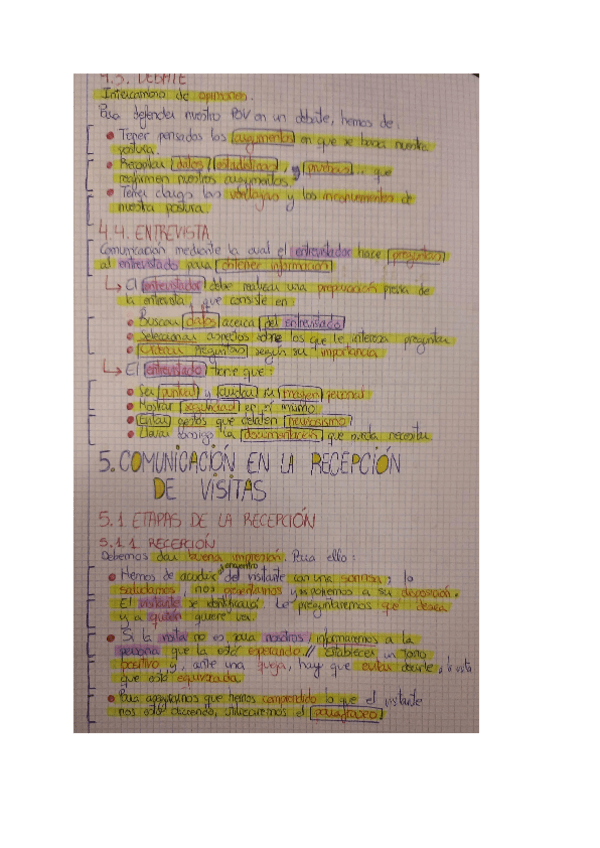 4.3. DEBATE
Intercambio de opiniones.
Para defender nuestro POV en un debate, hemos de:
• Tener pensados los argumentos en que se basa nuestra
postura.
• Recopilar datos, estadísticas, y pruebas... que
reafirmen nuestros argumentos.
• Tener claro las ventajas y los inconvenientes de
nuestra postura.
4.4. ENTREVISTA
Comunicación mediante la cual el entrevistador hace preguntas
al entrevistado para obtener información
↳ El entrevistador debe realizar una preparación previa de
la entrevista, que consiste en
• Buscar datos acerca del entrevistado
• Seleccionar aspectos sobre los que le interesa preguntar
• Ordenar preguntas según su importancia
↳ El entrevistado tiene que:
• Ser puntual y cuidar su imagen personal
• Mostrar seguridad en sí mismo
• Evitar gestos que delaten nerviosismo
• Llevar consigo la documentación que pueda necesitar
5. COMUNICACIÓN EN LA RECEPCIÓN
DE VISITAS
5.1. ETAPAS DE LA RECEPCIÓN
5.1.1. RECEPCIÓN
Debemos dar buena impresión. Para ello:
• Hemos de acudir al encuentro del visitante con una sonrisa; lo
saludamos, nos presentamos y nos ponemos a su disposición.
El visitante se identificará. Le preguntaremos qué desea
y a quién quiere ver.
• Si la visita no es para nosotros, informaremos a la
persona que la está esperando. // Establecer un tono
positivo y, ante una queja, hay que evitar decirle a la visita
que está equivocada
• Para asegurarnos que hemos comprendido lo que el visitante
nos está diciendo, utilizaremos el parafraseo